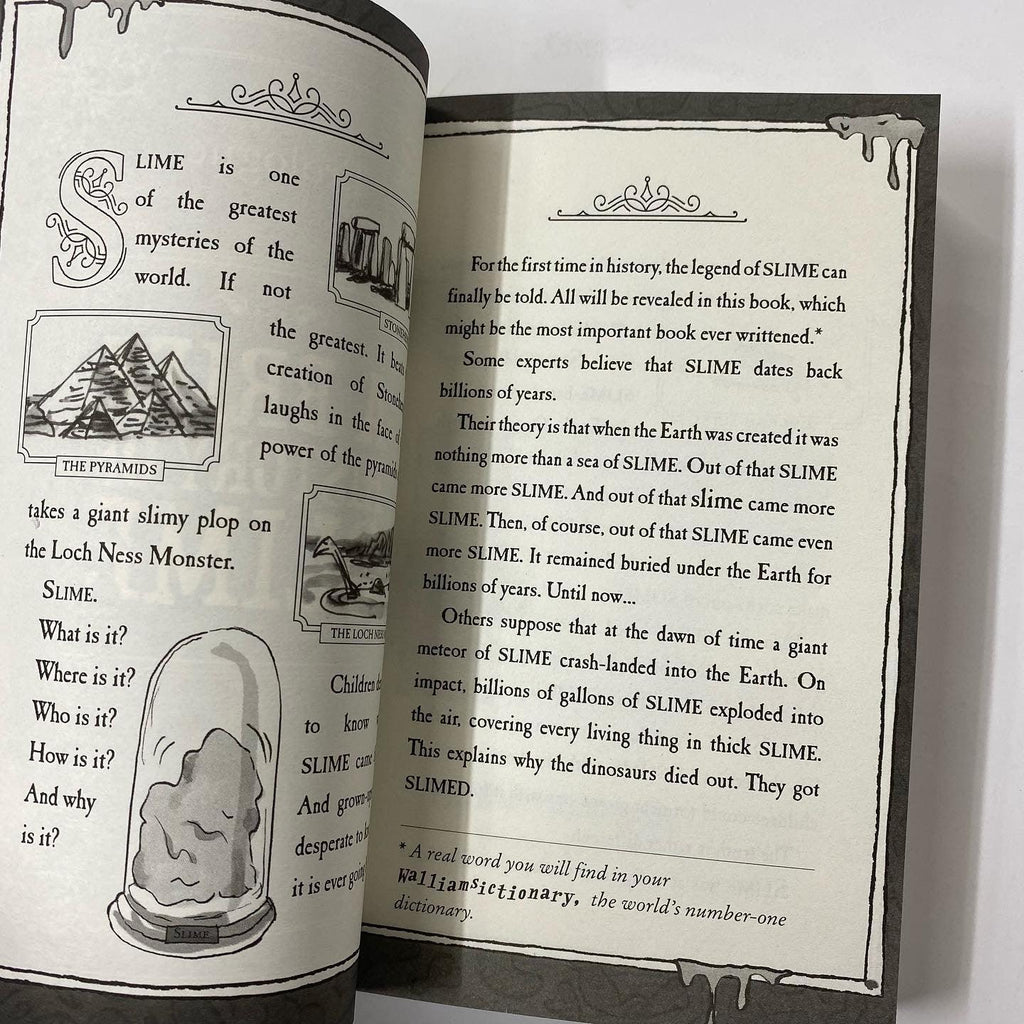 SLIME is one
of the greatest
mysteries of the
world. If not
the greatest. It
creation of
laughs in the face
power of the pyramids
THE PYRAMIDS
takes a giant slimy plop on
the Loch Ness Monster.
SLIME.
What is it?
Where is it?
Who is it?
How is it?
And why
is it?
THE LOCH
Children
to know
SLIME
And
desperate to
it is ever
SLIME
For the first time in history, the legend of SLIME can
finally be told. All will be revealed in this book, which
might be the most important book ever writtened.*
Some experts believe that SLIME dates back
billions of years.
Their theory is that when the Earth was created it was
nothing more than a sea of SLIME. Out of that SLIME
came more SLIME. And out of that slime came more
SLIME. Then, of course, out of that SLIME came even
more SLIME. It remained buried under the Earth for
billions of years. Until now...
Others suppose that at the dawn of time a giant
meteor of SLIME crash-landed into the Earth. On
impact, billions of gallons of SLIME exploded into
the air, covering every living thing in thick SLIME.
This explains why the dinosaurs died out. They got
SLIMED.
* A real word you will find in your
Walliamsictionary, the world's number-one
dictionary.